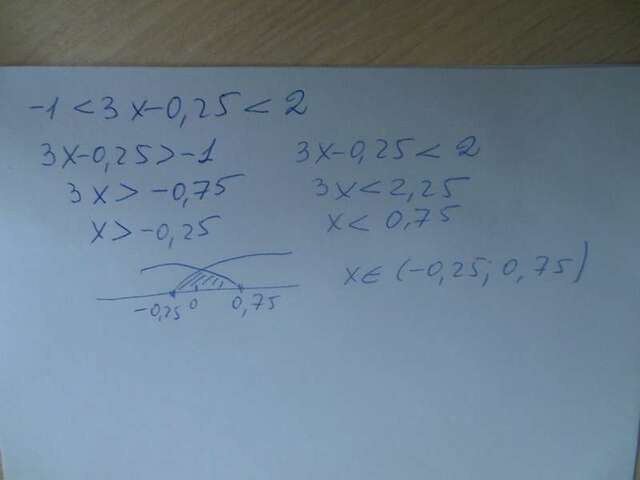 -1 < 3x-0,25 < 2
3x-0,25 > -1
3x > -0,75
x > -0,25
3x-0,25 < 2
3x < 2,25
x < 0,75
-0,25 0 0,75
x ∈ (-0,25; 0,75)